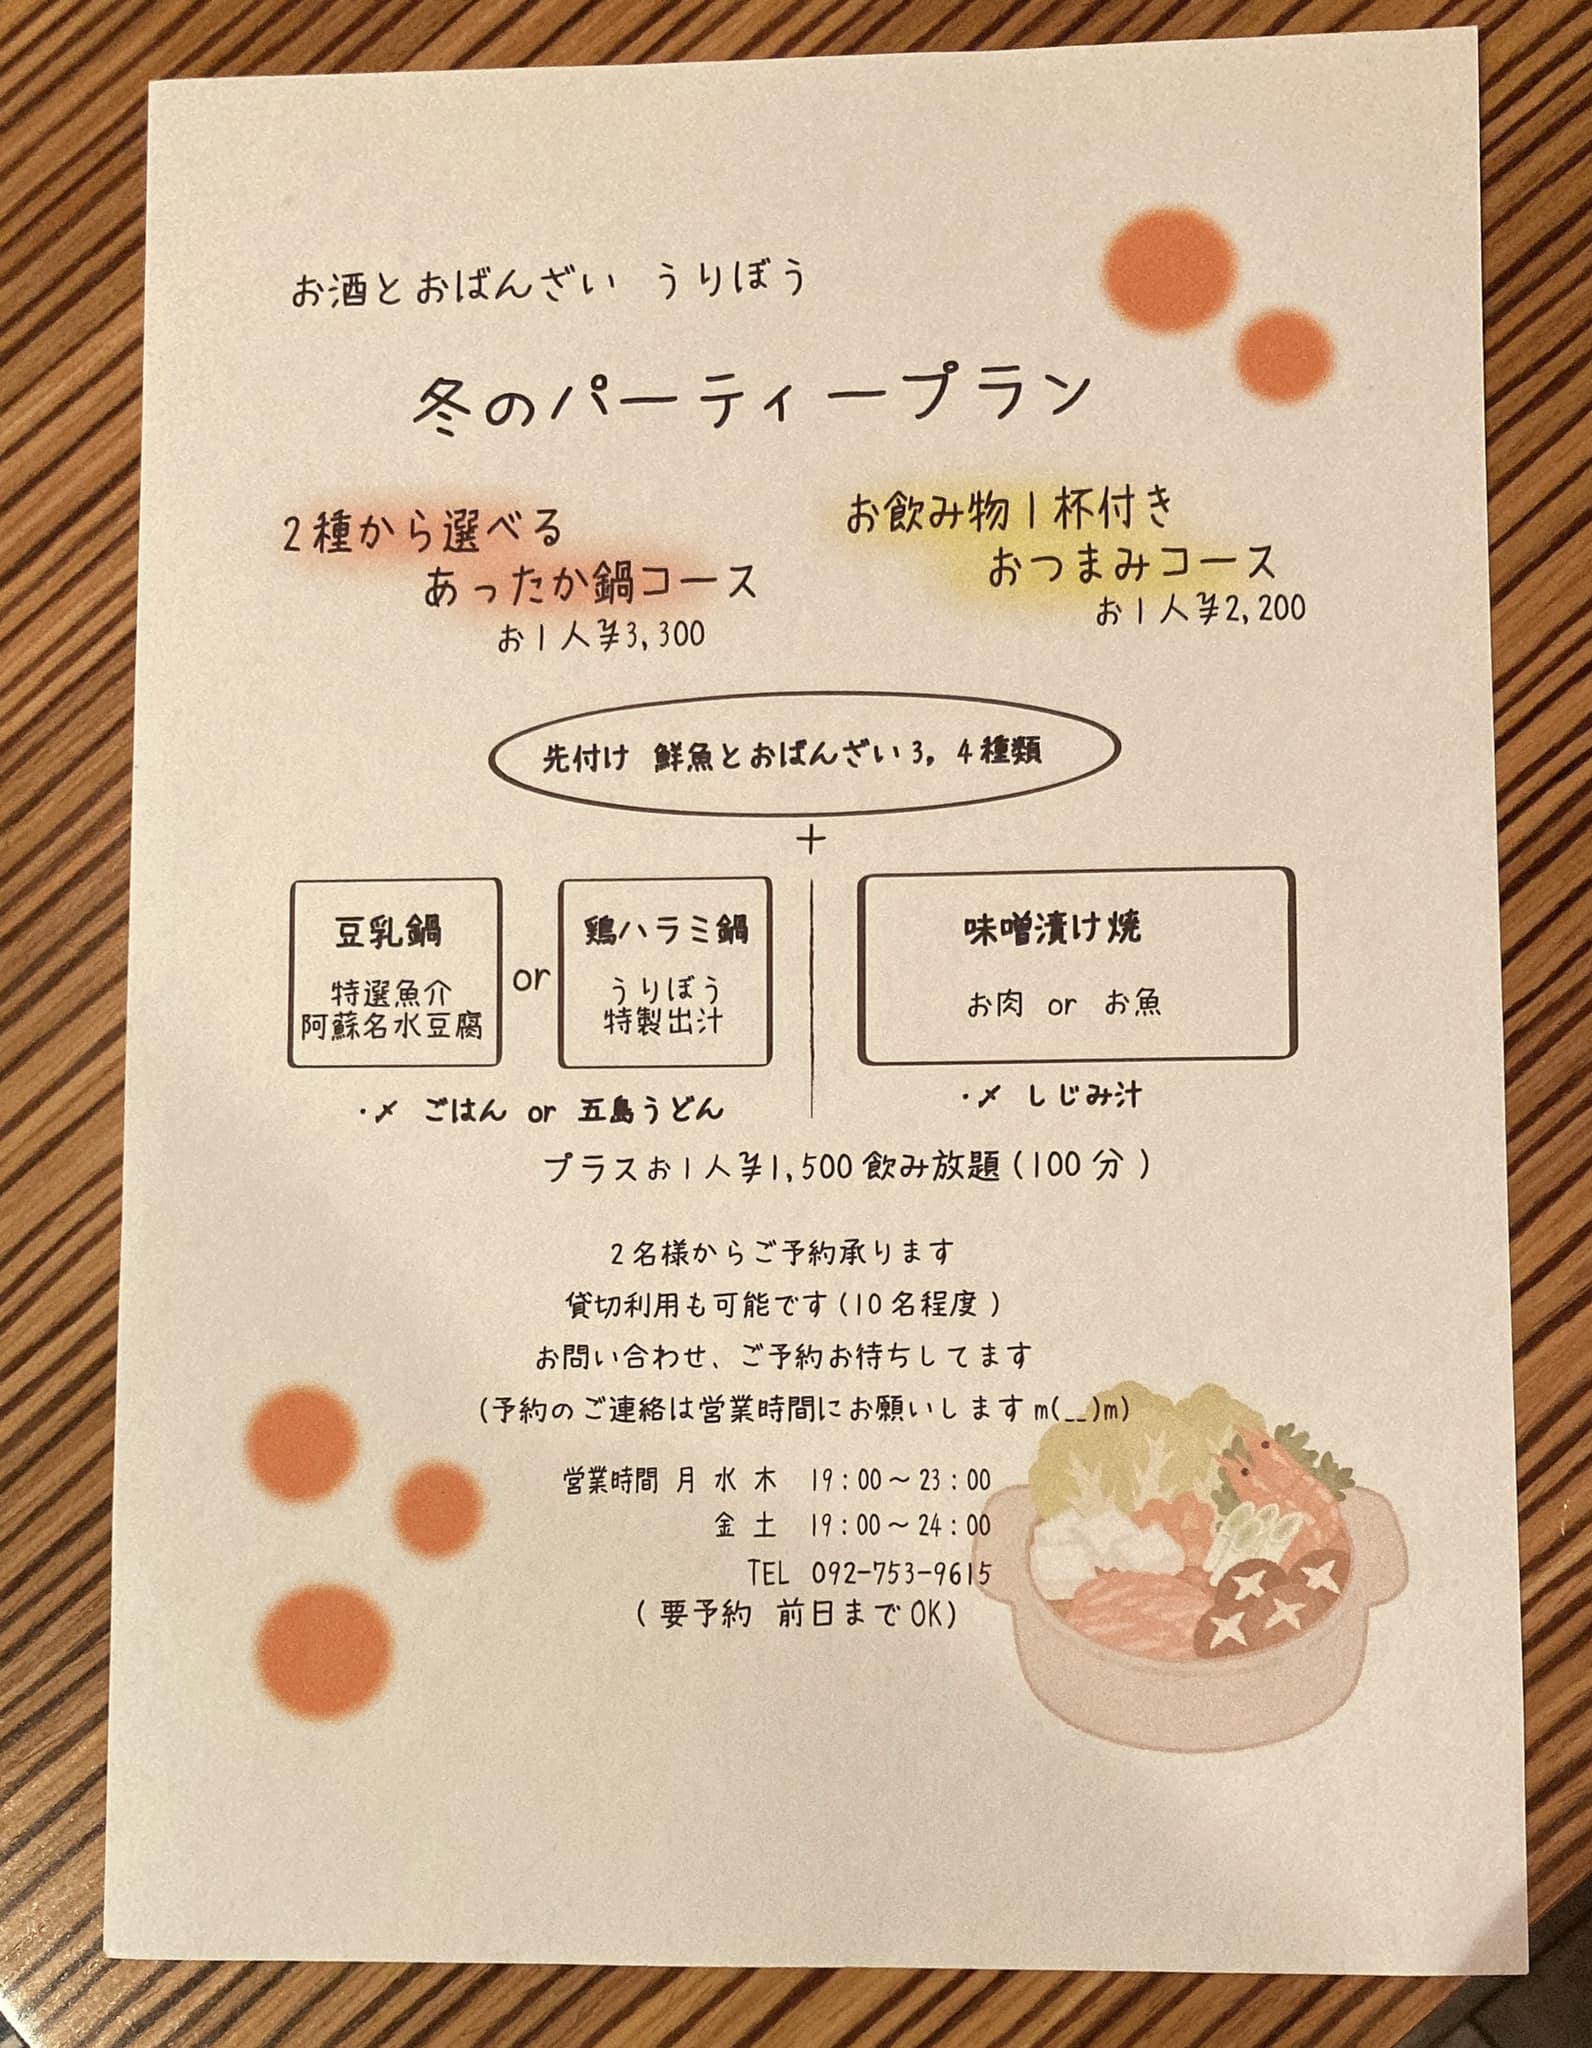 お酒とおばんざい うりぼう
冬のパーティープラン
2種から選べる
あったか鍋コース
お1人¥3,300
お飲み物1杯付き
おつまみコース
お1人¥2,200
先付け 鮮魚とおばんざい3,4種類
+
豆乳鍋
特選魚介
阿蘇名水豆腐
or
鶏ハラミ鍋
うりぼう
特製出汁
・〆 ごはん or 五島うどん
味噌漬け焼
お肉 or お魚
・〆 しじみ汁
プラスお1人¥1,500飲み放題(100分)
2名様からご予約承ります
貸切利用も可能です(10名程度)
お問い合わせ、ご予約お待ちしてます
(予約のご連絡は営業時間にお願いしますm(__)m)
営業時間 月 水 木 19:00~23:00
金 土 19:00~24:00
TEL 092-753-9615
(要予約 前日までOK)